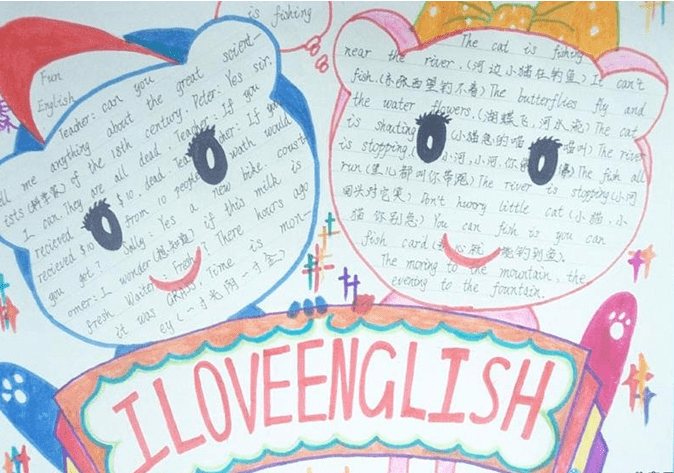 is fishing
Fun
English
Teacher: can you
tell me anything about the great scient-
ists (科学家) of the 18th century. Peter: Yes sir.
I can. They are all dead. Teacher: If you
recieved $10 from 10 people
you got? Sally: Yes a new bike.
omer: I wonder if this milk is
fresh. Waiter: Fresh? Three hours ago
it was GRASS. Time is mon-
ey (一寸光阴一寸金)
The cat is fishing
near the river. (河边小猫在钓鱼) It can't
fish. (东张西望钓不着) The butterflies fly and
the water flowers. (蝴蝶飞,河水流) The cat
is shouting (小猫急的喵喵叫) The river
is stopping. (小河,小河你 The fish all
run (鱼儿都叫你带跑) The river is stopping (小河
回头对它笑) Don't hurry little cat (小猫,小
猫你别急) You can fish is you can
fish card
The moring to the mountain, the
evening to the fountain.
ILOVEENGLISH